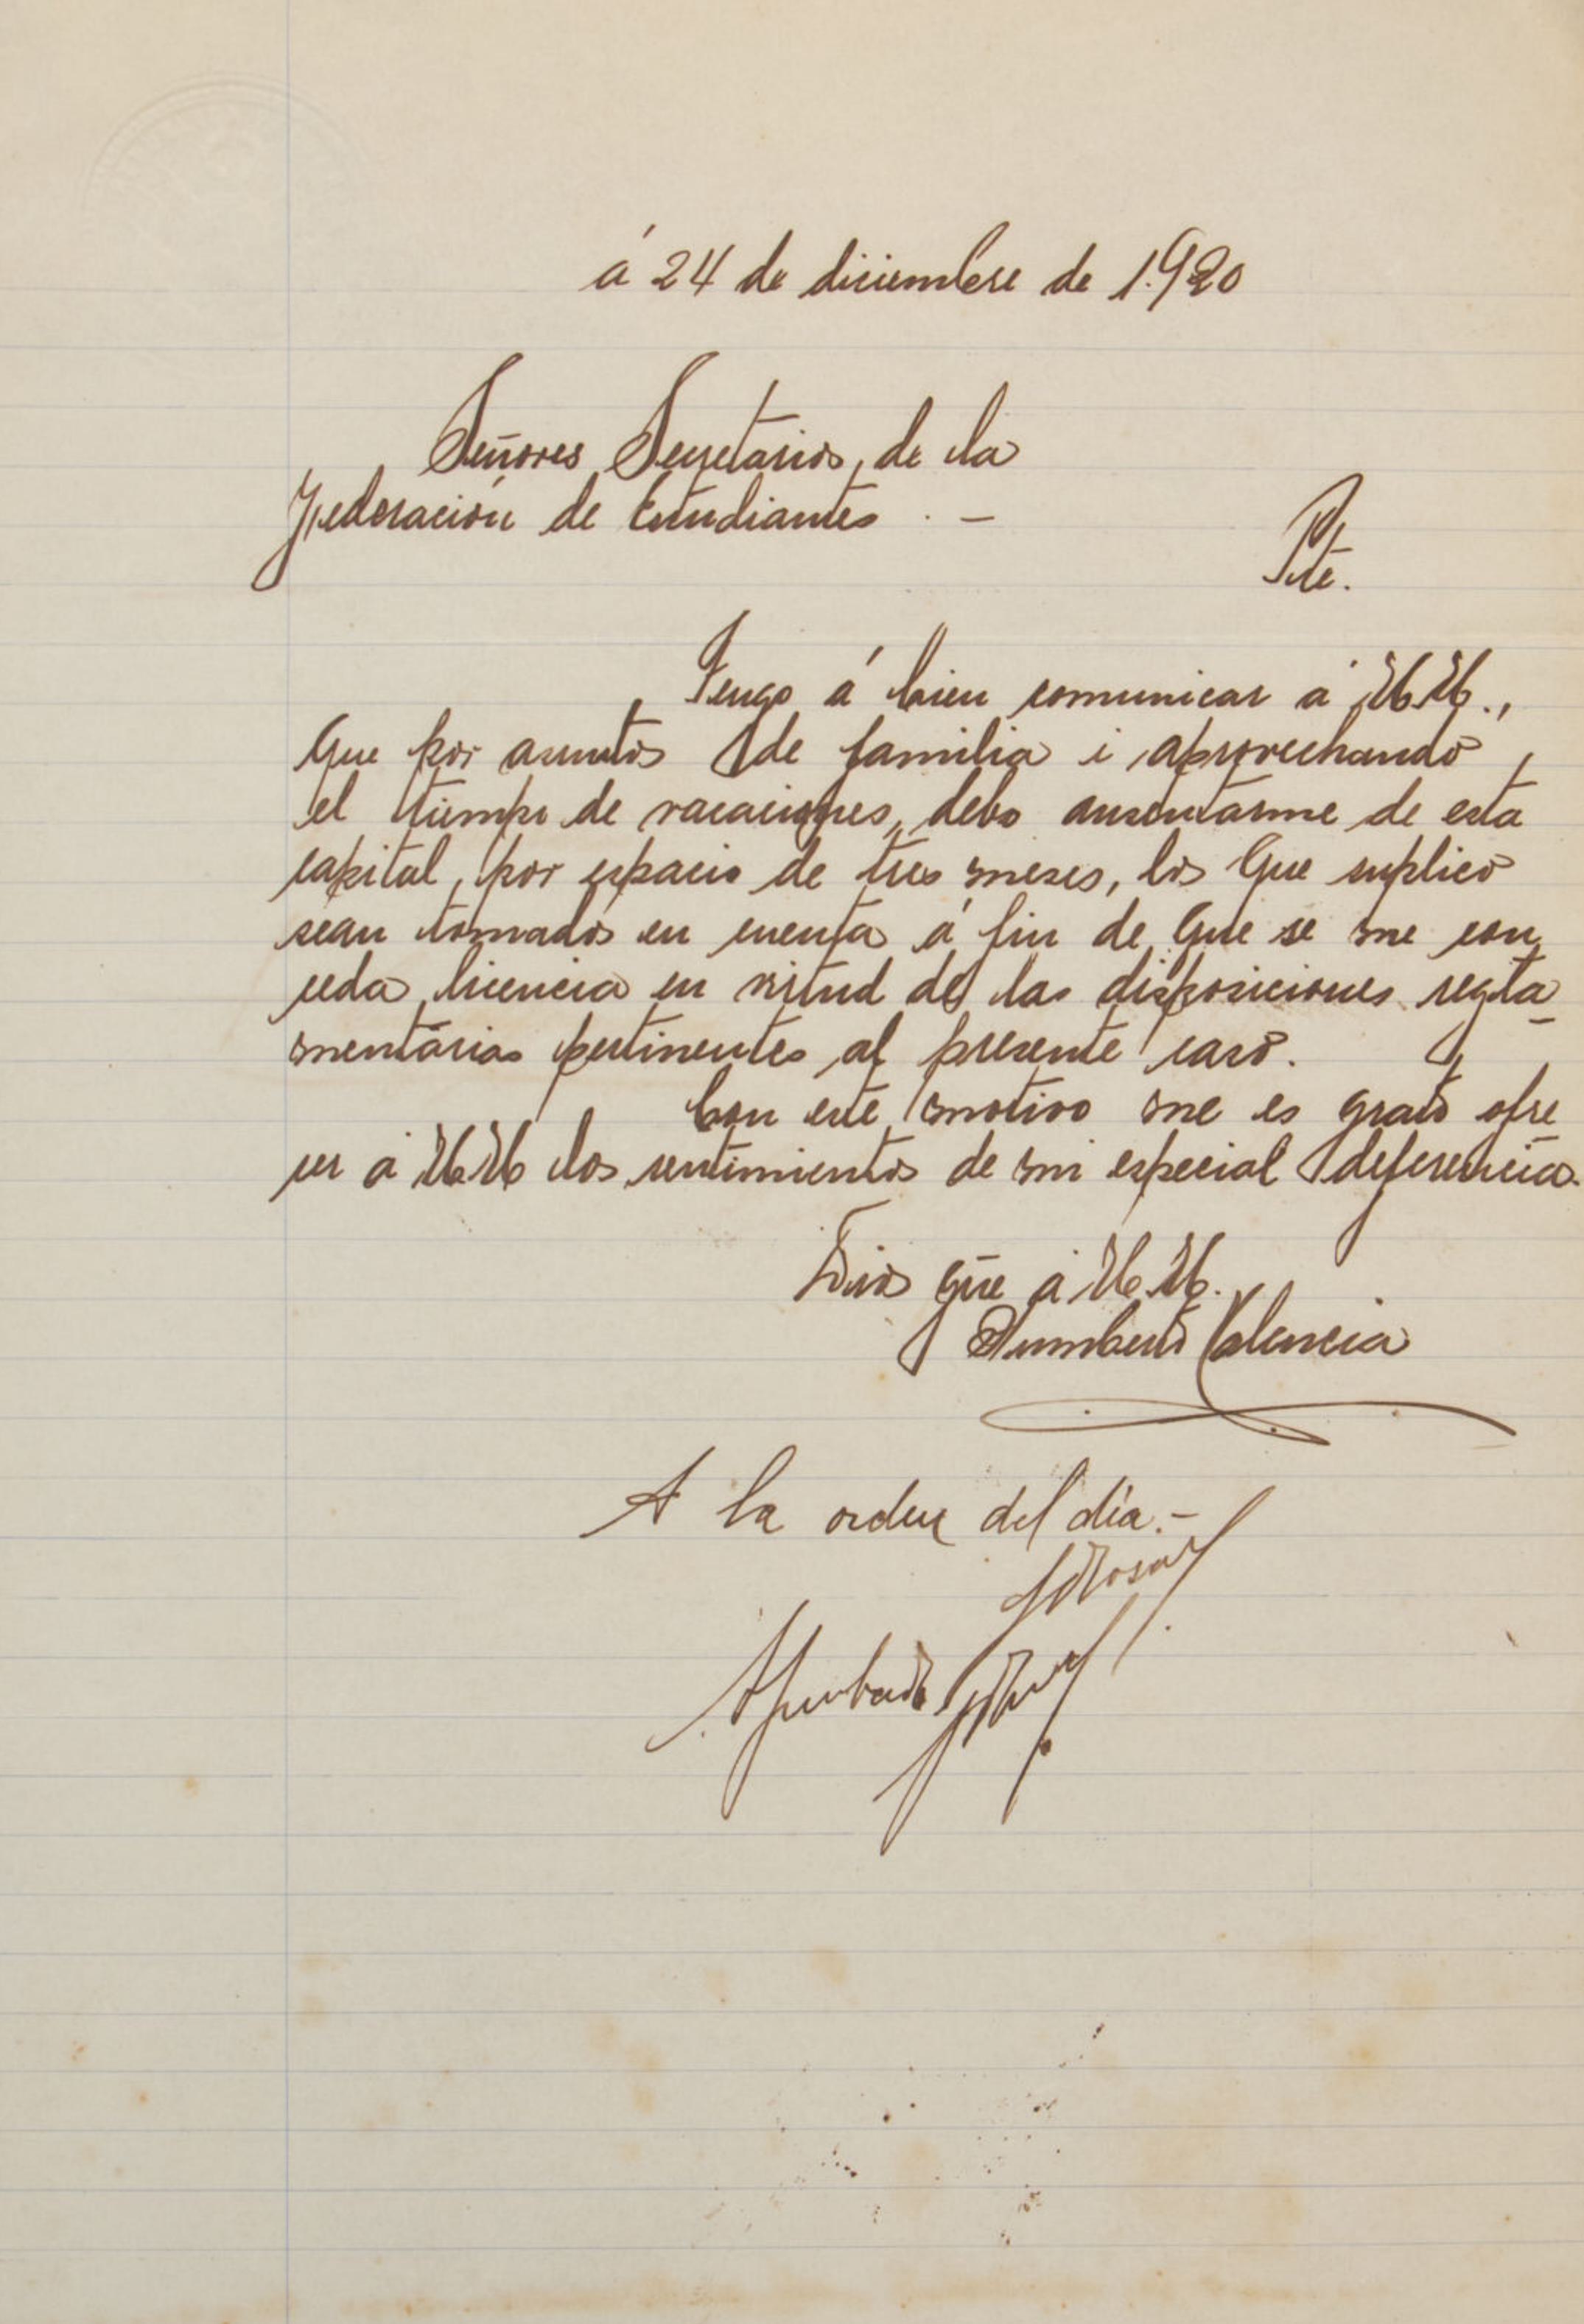 á 24 de diciembre de 1.920
Señores Secretarios de la
Federación de Estudiantes . —
Pte.
Tengo á bien comunicar á UU.,
que por asuntos de familia i aprovechando
el tiempo de vacaciones, debo ausentarme de esta
capital, por espacio de tres meses, los que suplico
sean tomados en cuenta á fin de que se me con
ceda licencia en virtud de las disposiciones regla_
mentarias pertinentes al presente caso.
Con este motivo me es grato ofre
cer á UU los sentimientos de mi especial deferencia.
Dios gúe á UU.
Humberto Valencia
A la orden del día.—
Aprobado